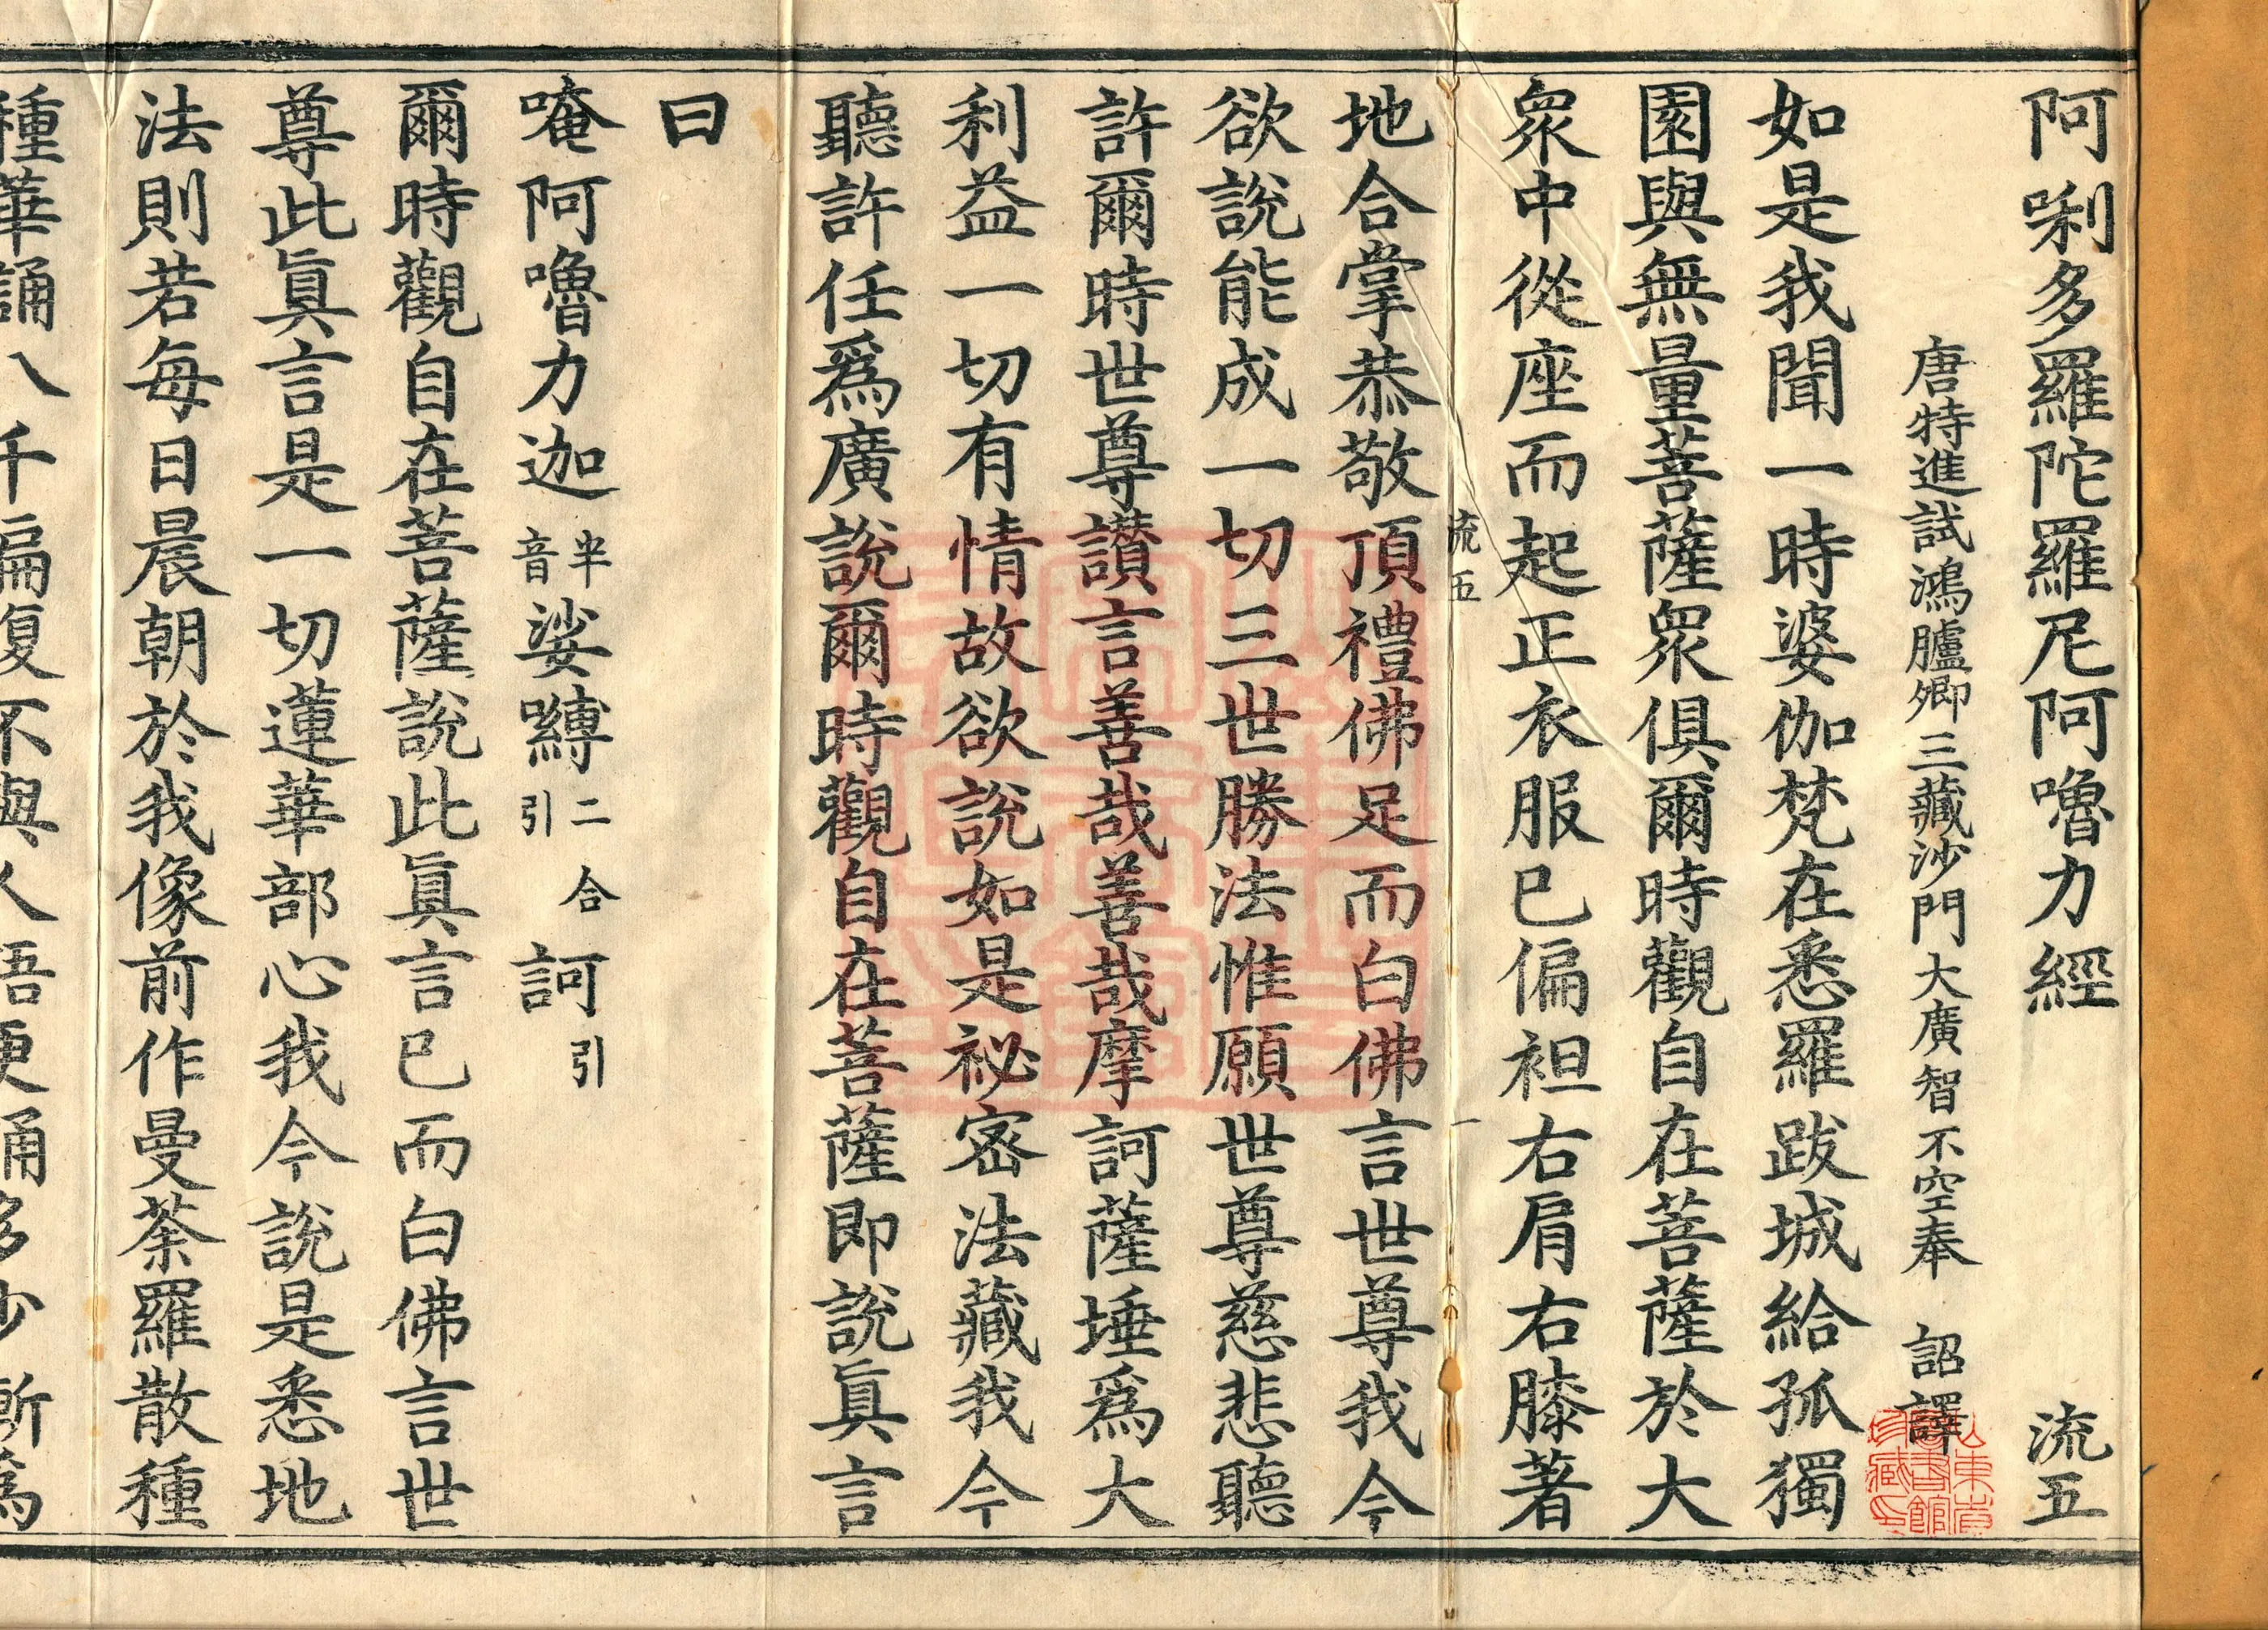 阿唎多羅陀羅尼阿嚕力經 流五
唐特進試鴻臚卿三藏沙門大廣智不空奉 詔譯
如是我聞一時婆伽梵在悉羅跋城給孤獨
園與無量菩薩衆俱爾時觀自在菩薩於大
衆中從座而起正衣服已偏袒右肩右膝著
流五 一
地合掌恭敬頂禮佛足而白佛言世尊我今
欲說能成一切三世勝法惟願世尊慈悲聽
許爾時世尊讚言善哉善哉摩訶薩埵爲大
利益一切有情故欲說如是祕密法藏我今
聽許任爲廣說爾時觀自在菩薩即說眞言
曰
唵阿嚕力迦半音娑嚩二合引訶引
爾時觀自在菩薩說此眞言已而白佛言世
尊此眞言是一切蓮華部心我今說是悉地
法則若每日晨朝於我像前作曼荼羅散種
種華誦八千徧復不與人語更誦多少漸爲
山東省圖書館珍藏印